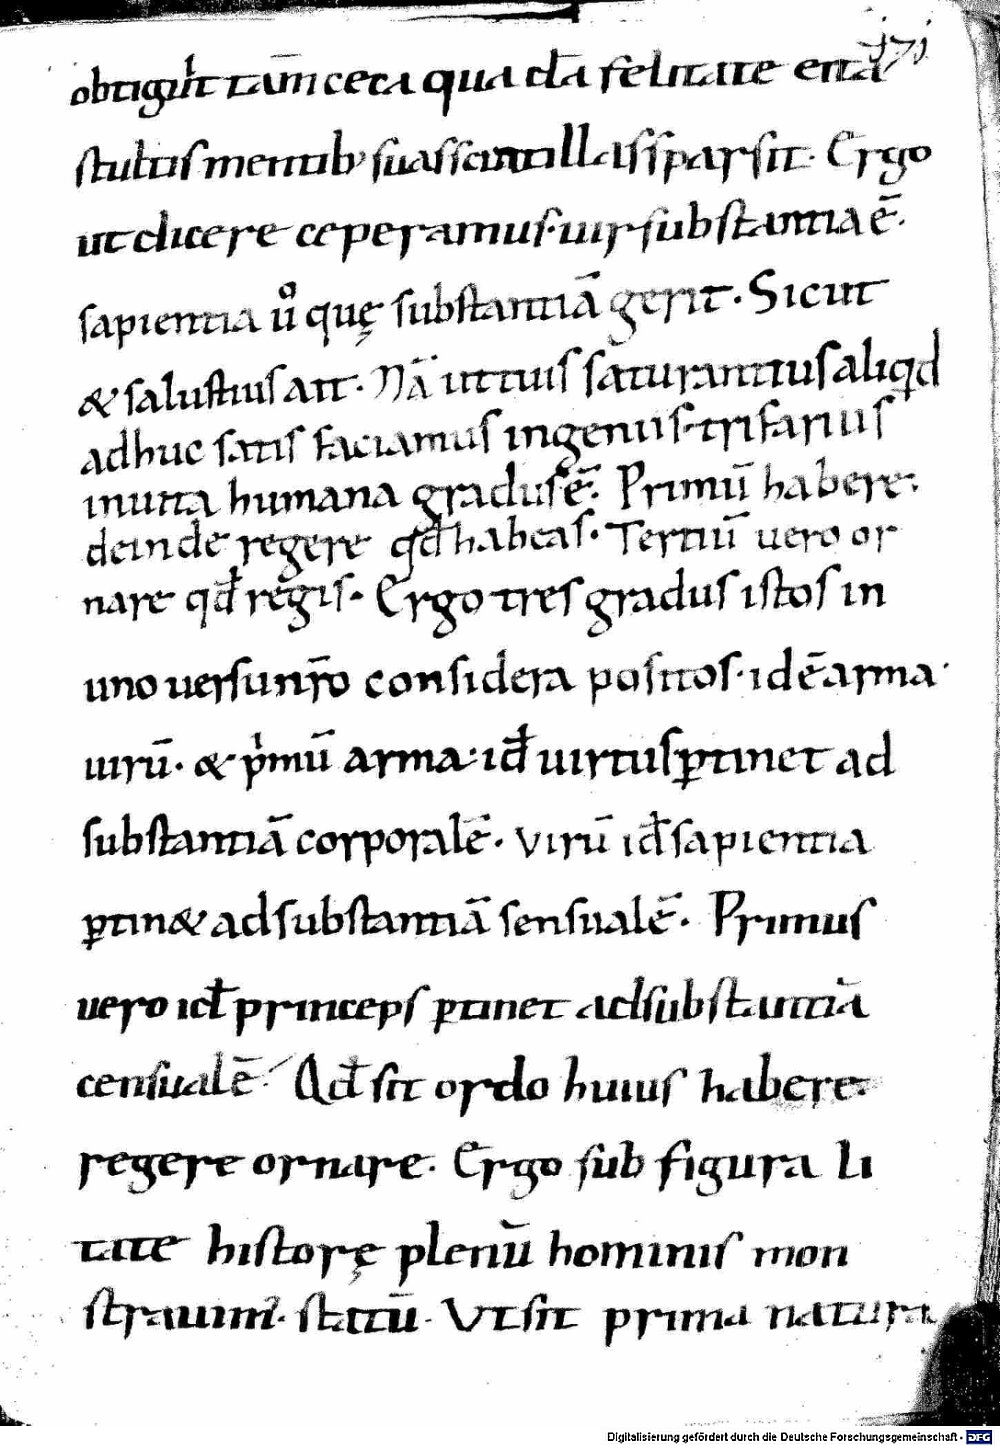 171
obtigit tam̄ ceca quadā felitate etiā
stultis mentib; suas scintillas sparsit. Ergo
ut dicere ceperamus. uir substantia ē.
sapientia ů quę substantiā gerit. Sicut
& salustius ait. Nā ut tuis saturantius aliqd
adhuc satis faciamus ingeniis. trifarius
inuita humana gradus ē. Primū habere.
deinde regere qd habeas. Tertiū uero or
nare qđ regis. Ergo tres gradus istos in
uno uersu nr̄o considera positos. id ē arma
uirū. & pʼmū arma. iđ uirtus ꝑtinet ad
substantiā corporalē. Virū iđ sapientia
ꝑtin& ad substantiā sensualē. Primus
uero iđ princeps ꝑtinet ad substantiā
censualē. Qđ sit ordo huius habere.
regere ornare. Ergo sub figura li
tate historę plenū hominis mon
strauim᷒. statū. Vt sit prima natura
Digitalisierung gefördert durch die Deutsche Forschungsgemeinschaft - DFG